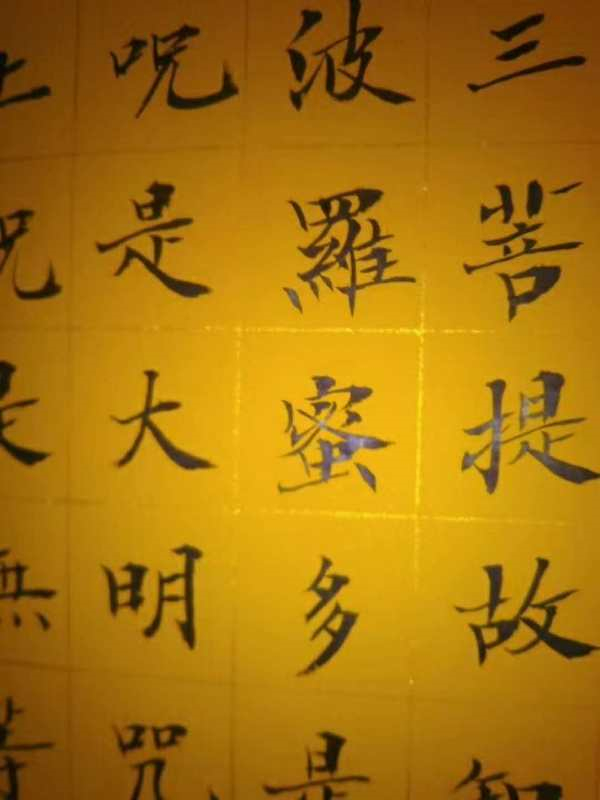 三菩提故知
波羅蜜多是
呪是大明咒
上呪是無等